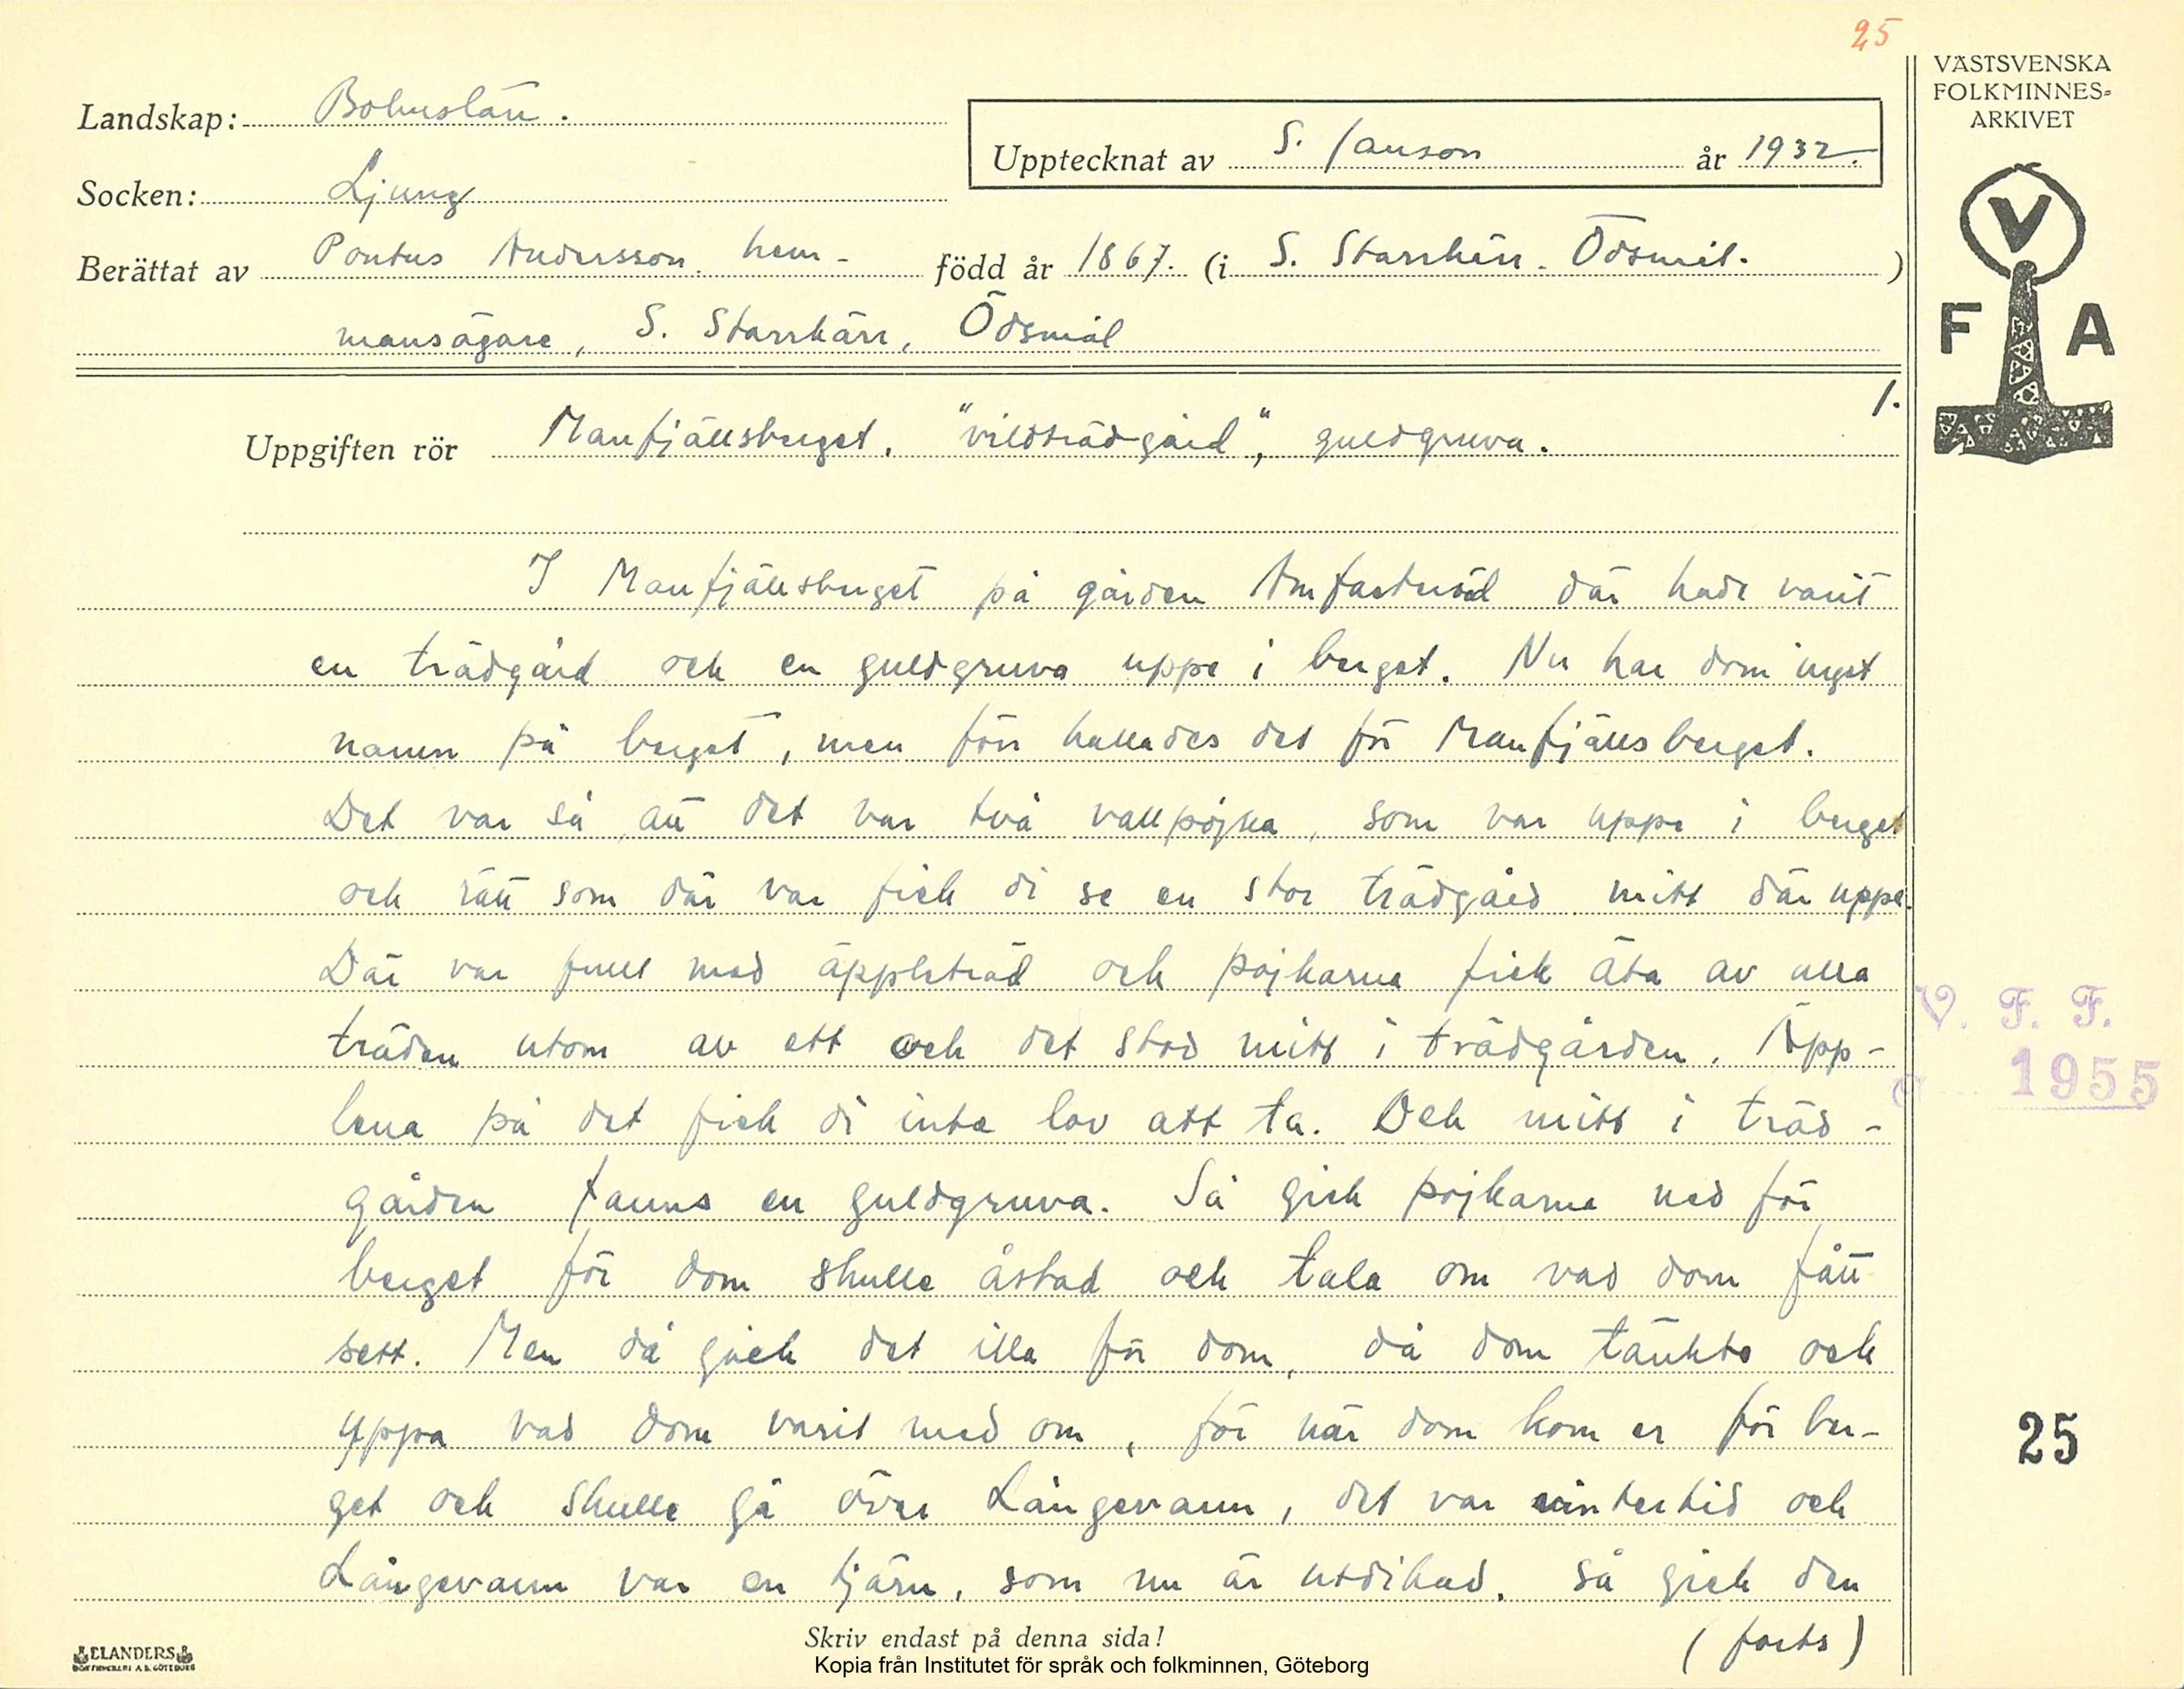 25
VÄSTSVENSKA
FOLKMINNES-
ARKIVET
Landskap: Bohuslän.
Upptecknat av S. Janson år 1932.
Socken: Ljung
Berättat av Pontus Andersson. hem- född år 1867. (i S. Starrkärr. Ödsmål. )
mansägare, S. Starrkärr, Ödsmål
V
F A
1.
Uppgiften rör Manfjällsberget. "vildträdgård", guldgruva.
I Manfjällsberget på gården Amfaströd där hade varit
en trädgård och en guldgruva uppe i berget. Nu har dom inget
namn på berget, men förr kallades det för Manfjällsberget.
Det var så att det var två vallpojka, som var uppe i berget
och rätt som där var fick di se en stor trädgård mitt där uppe.
Där var fullt med äppleträd och pojkarna fick äta av alla
träden utom av ett och det stod mitt i trädgården. Äpp-
lena på det fick di inte lov att ta. Och mitt i träd-
gården fanns en guldgruva. Så gick pojkarna ned för
berget för dom skulle åstad och tala om vad dom fått
sett. Men då gick det illa för dom, då dom tänkte och
yppa vad dom varit med om, för när dom kom er för ber-
get och skulle gå över Långevann, det var vintertid och
Långevann var en tjärn, som nu är utdikad. Så gick den
(forts)
V. F. F.
1955
25
Skriv endast på denna sida!
ELANDERS
BOKTRYCKERI A.B. GÖTEBORG
Kopia från Institutet för språk och folkminnen, Göteborg